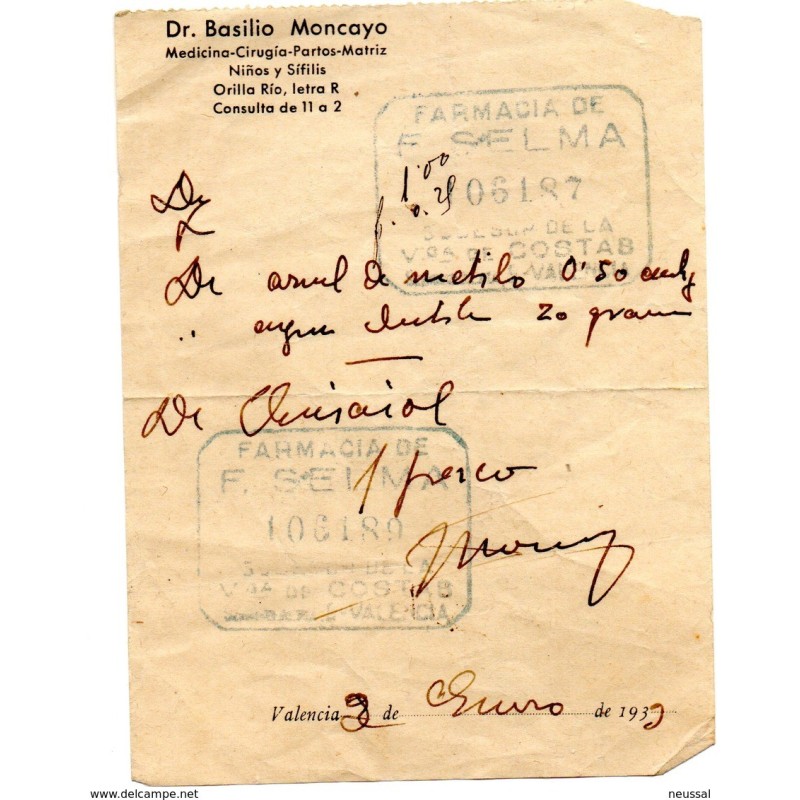 Dr. Basilio Moncayo
Medicina-Cirugía-Partos-Matriz
Niños y Sífilis
Orilla Río, letra R
Consulta de 11 a 2
FARMACIA DE
F. SELMA
106187
SUCESOR DE LA
V.DA DE COSTAS
VALENCIA
1'00
0.25
De
De azul de metilo 0'50
" agua 20 gramos
De
1 frasco
FARMACIA DE
F. SELMA
106189
SUCESOR DE LA
V.DA DE COSTAS
VALENCIA
Valencia 3 de Enero de 193
www.delcampe.net
neussal